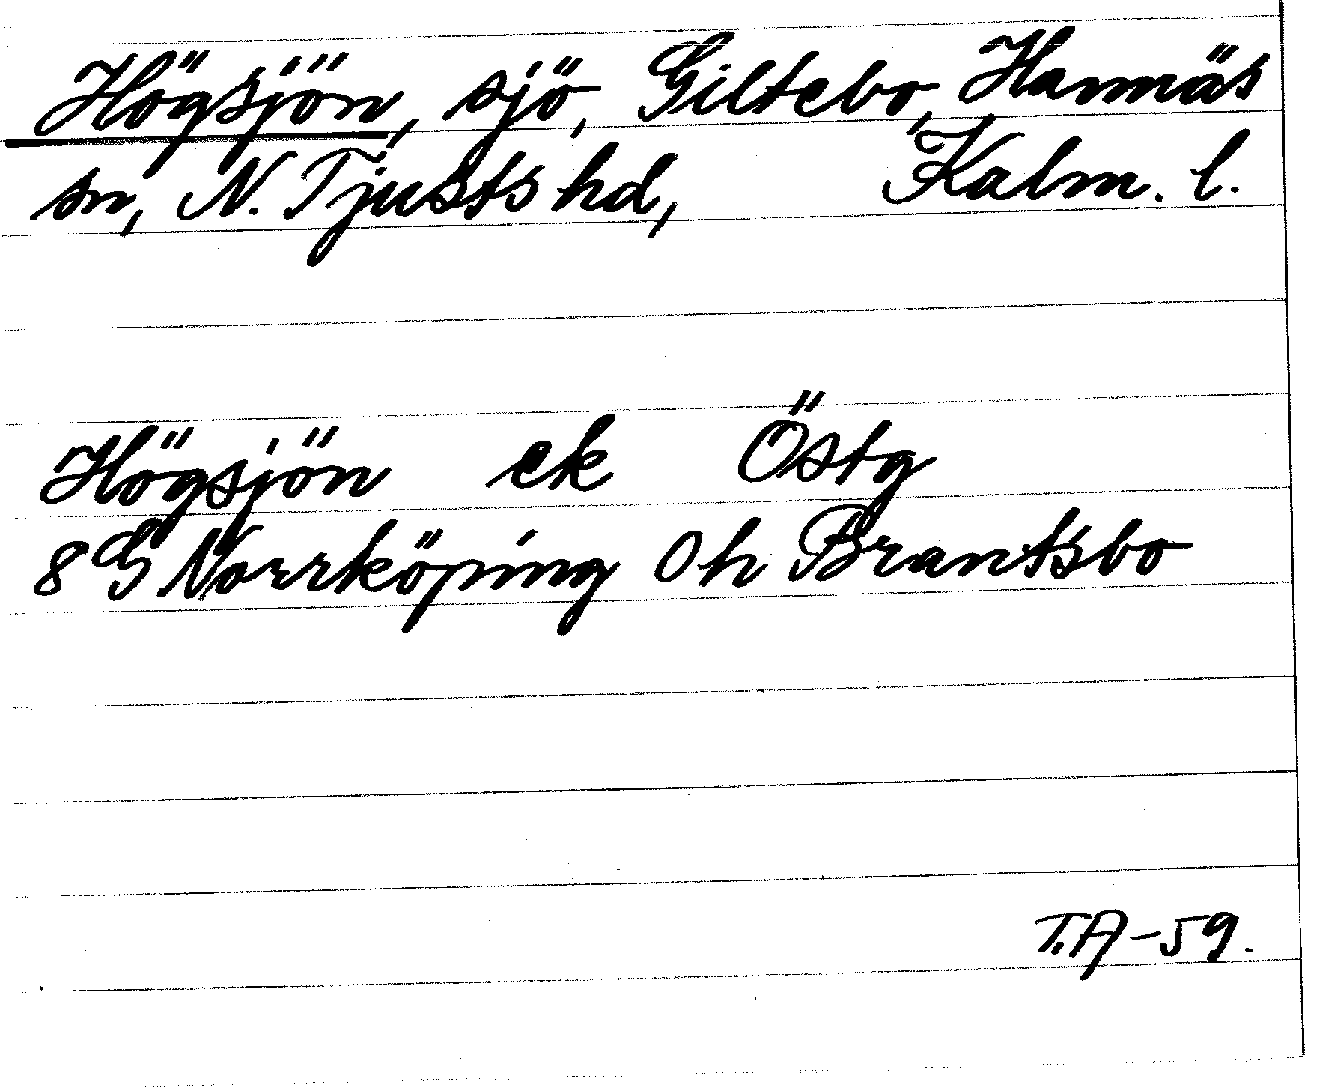 Högsjön, sjö, Giltebo, Hannäs
sn, N. Tjusts hd, Kalm. l.
Högsjön ek Östg
8 G Norrköping Oh Brantsbo
T.A-59.